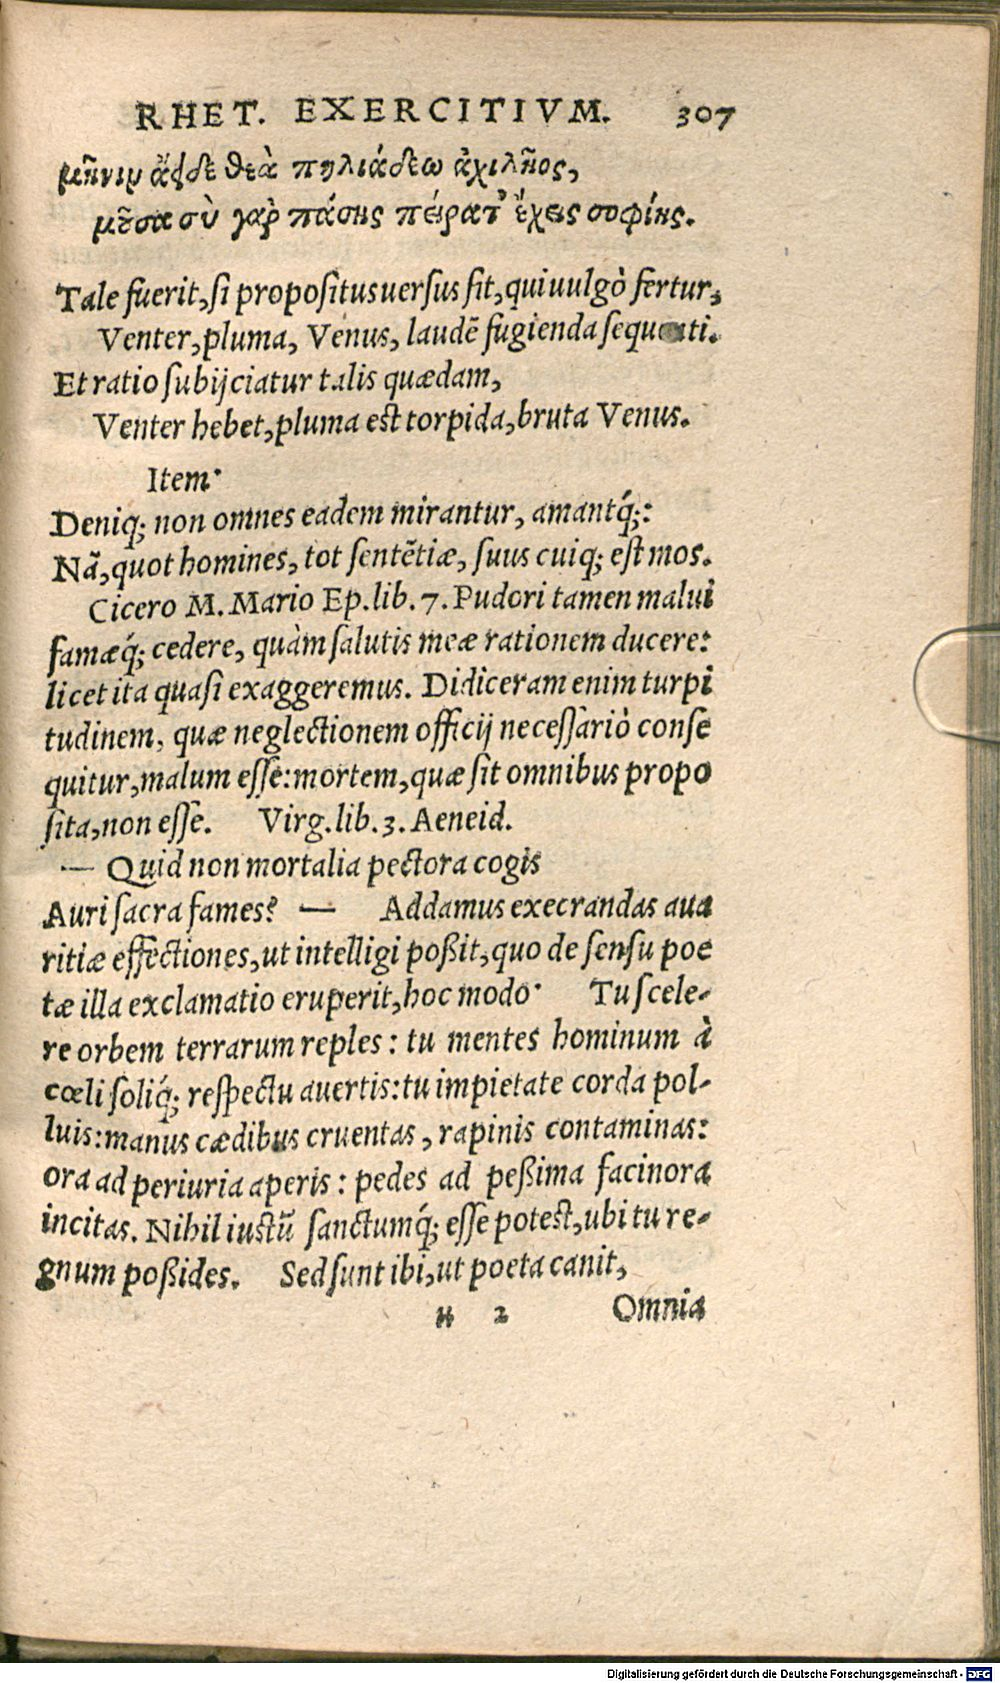 RHET. EXERCITIVM. 307
μῆνιν ἄειδε θεὰ πηλιάδεω ἀχιλῆος,
μοῦσα σὺ γαρ πάσης πείρατ' ἔχεις σοφίης.
Tale fuerit, si propositus uersus sit, qui uulgò fertur,
Venter, pluma, Venus, laudē fugienda sequenti.
Et ratio subijciatur talis quædam,
Venter hebet, pluma est torpida, bruta Venus.
Item·
Deniq; non omnes eadem mirantur, amantq́;:
Nã, quot homines, tot sentētiæ, suus cuiq; est mos.
Cicero M. Mario Ep. lib. 7. Pudori tamen malui
famæq́; cedere, quàm salutis meæ rationem ducere:
licet ita quasi exaggeremus. Didiceram enim turpi
tudinem, quæ neglectionem officij necessariò conse
quitur, malum esse: mortem, quæ sit omnibus propo
sita, non esse. Virg. lib. 3. Aeneid.
— Quid non mortalia pectora cogis
Auri sacra fames? — Addamus execrandas aua
ritiæ effectiones, ut intelligi poßit, quo de sensu poe
tæ illa exclamatio eruperit, hoc modo· Tu scele-
re orbem terrarum reples: tu mentes hominum à
cœli soliq́; respectu auertis: tu impietate corda pol-
luis: manus cædibus cruentas, rapinis contaminas:
ora ad periuria aperis: pedes ad peßima facinora
incitas. Nihil iustũ sanctumq́; esse potest, ubi tu re-
gnum poßides. Sed sunt ibi, ut poeta canit,
H 2 Omnia
Digitalisierung gefördert durch die Deutsche Forschungsgemeinschaft - DFG